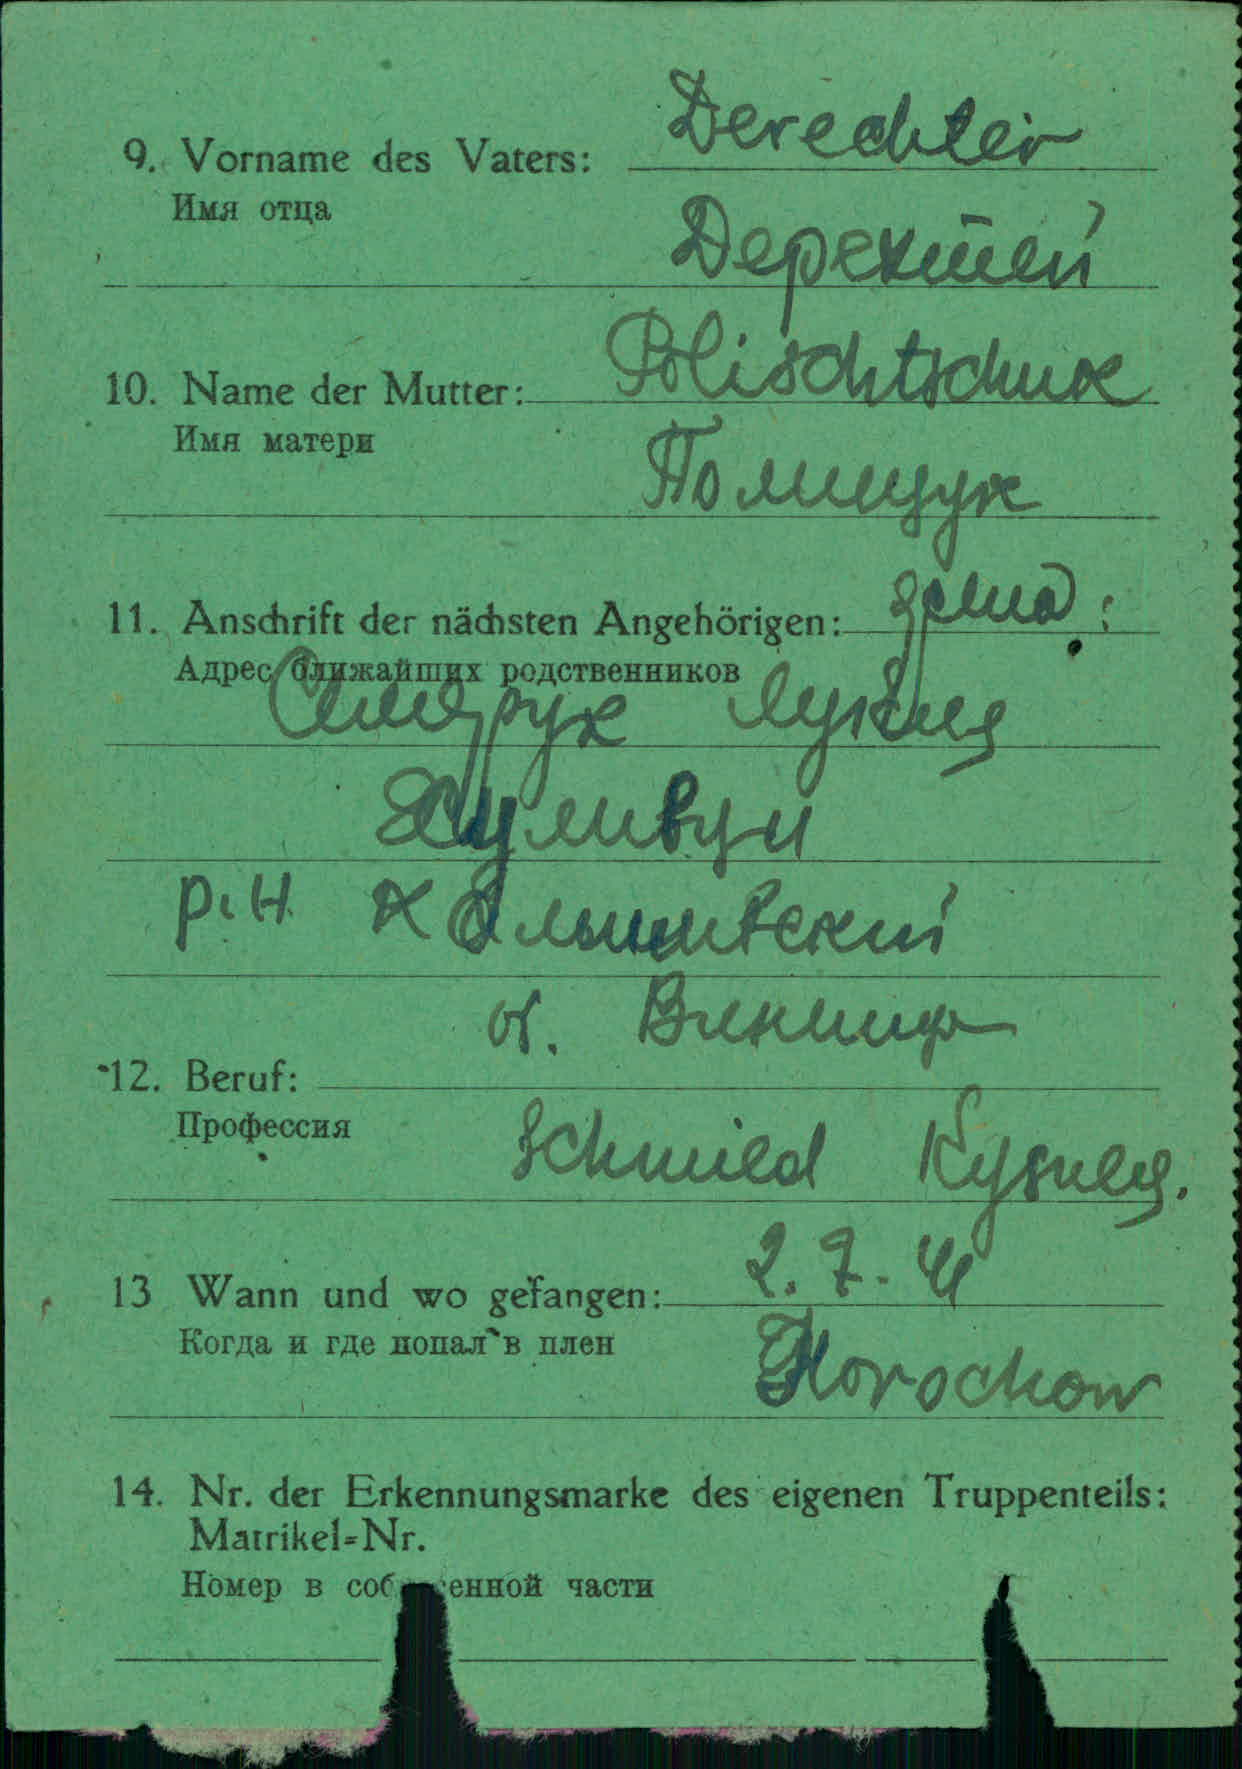 9. Vorname des Vaters: Derechtei
Имя отца
Дерехтей
10. Name der Mutter: Polischtschuk
Имя матери
Полищук
11. Anschrift der nächsten Angehörigen:
Адрес ближайших родственников
р.н
об. Виница
12. Beruf:
Профессия
Schmied Кузнец.
13 Wann und wo gefangen: 2. 7. 41
Когда и где попал в плен
Horochow
14. Nr. der Erkennungsmarke des eigenen Truppenteils:
Matrikel=Nr.
Номер в соб енной части